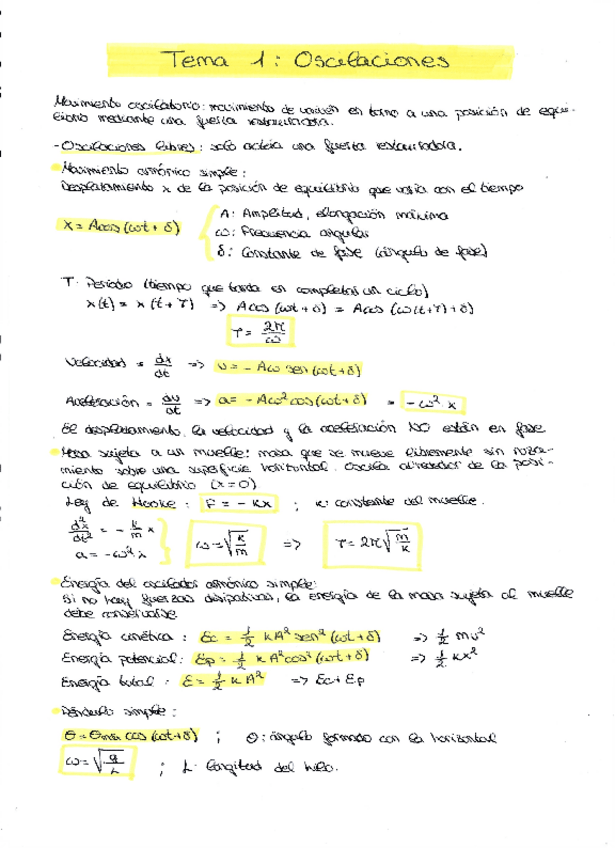 Tema 1: Oscilaciones
Movimiento oscilatorio: movimiento de vaivén en torno a una posición de equi-
librio mediante una fuerza restauradora.
- Oscilaciones libres: solo actúa una fuerza restauradora.
Movimiento armónico simple:
Desplazamiento x de la posición de equilibrio que varía con el tiempo
x = A cos (ωt + δ)
A: Amplitud, elongación máxima
ω: Frecuencia angular
δ: Constante de fase (ángulo de fase)
T: Período (tiempo que tarda en completar un ciclo)
x(t) = x(t + T) => A cos (ωt + δ) = A cos (ω(t+T) + δ)
T = 2π/ω
Velocidad = dx/dt => v = - Aω sen (ωt + δ)
Aceleración = dv/dt => a = - Aω² cos (ωt + δ) = - ω² x
El desplazamiento, la velocidad y la aceleración NO están en fase
Masa sujeta a un muelle: masa que se mueve libremente sin roza-
miento sobre una superficie horizontal. Oscila alrededor de la posi-
ción de equilibrio (x = 0)
Ley de Hooke: F = - Kx ; K: constante del muelle.
d²x/dt² = - k/m x
a = - ω² x
ω = √k/m => T = 2π √m/k
Energía del oscilador armónico simple:
Si no hay fuerzas disipativas, la energía de la masa sujeta al muelle
debe conservarse.
Energía cinética: Ec = 1/2 KA² sen² (ωt + δ) => 1/2 mv²
Energía potencial: Ep = 1/2 KA² cos² (ωt + δ) => 1/2 Kx²
Energía total: E = 1/2 KA² => Ec + Ep
Péndulo simple:
cos (ωt + δ) ; θ: ángulo formado con la horizontal
ω = √g/L ; L: longitud del hilo.